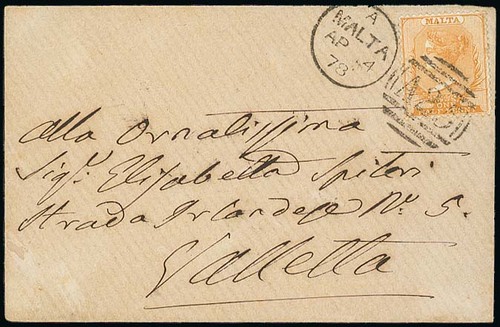 A
MALTA
AP 14
78
MALTA
Alla Ornatissima
Sig.ª Elisabetta Spiteri
Strada Irlandese No. 5.
Valletta